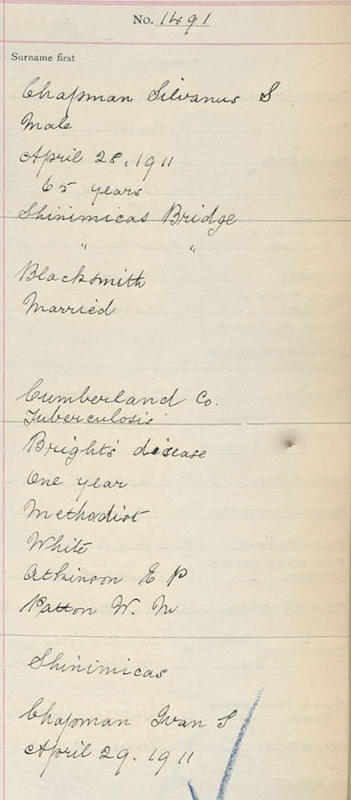 No. 1491
Surname first
Chapman Silvanus S
Male
April 28, 1911
65 years
Shinimicas Bridge
" "
Blacksmith
Married
Cumberland Co.
Tuberculosis
Bright's disease
One year
Methodist
White
Atkinson E P
Patton W. M
Shinimicas
Chapman Ivan S
April 29. 1911